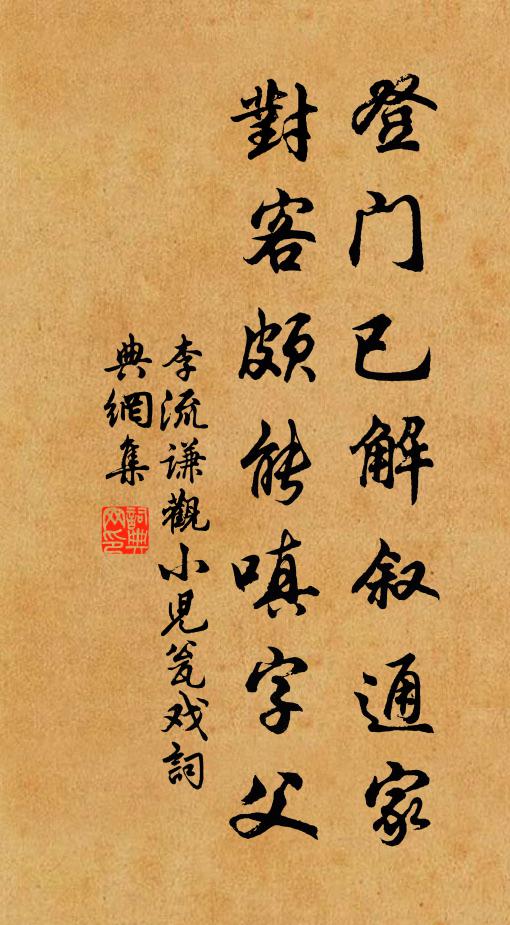 登门已解叙通家
對客頗能嗔字父
李流谦觀小児瓮戏詞
典網集
詞典網印